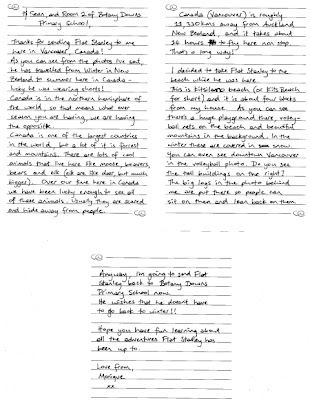 Hi Sean, and Room 2 of Botany Downs
Primary School!,
Thanks for sending Flat Stanley to me
here in Vancouver, Canada!
As you can see from the photos I've sent,
he has travelled from Winter in New
Zealand to summer here in Canada -
lucky he was wearing shorts!
Canada is in the northern hemisphere of
the world, so that means what ever
season you are having, we are having
the opposite.
Canada is one of the largest countries
in the world, but a lot of it is forest
and mountains. There are lots of cool
animals that live here like moose, beavers,
bears and elk (elk are like deer, but much
bigger). Over our time here in Canada
we have been lucky enough to see all
of these animals. Usually they are scared
and hide away from people.
Canada (Vancouver) is roughly
11,330 kms away from Auckland
New Zealand, and it takes about
14 hours to fly here non stop.
That's a long way!
I decided to take Flat Stanley to the
beach while he was here.
This is Kitsilano beach (or Kits Beach
for short) and it is about four blocks
from my house. As you can see
there's a huge playground there, volley-
ball nets on the beach and beautiful
mountains in the background. In the
winter these are covered in snow.
You can even see downtown Vancouver
in the volleyball photo. Do you see
the tall buildings on the right?
The big logs in the photo behind
me are put there so people can
sit on them and lean back on them.
Anyway, I'm going to send Flat
Stanley back to Botany Downs
Primary School now.
He wishes that he doesnt have
to go back to winter!!
Hope you have fun learning about
all the adventures Flat Stanley has
been up to.
Love from,
Monique
xx